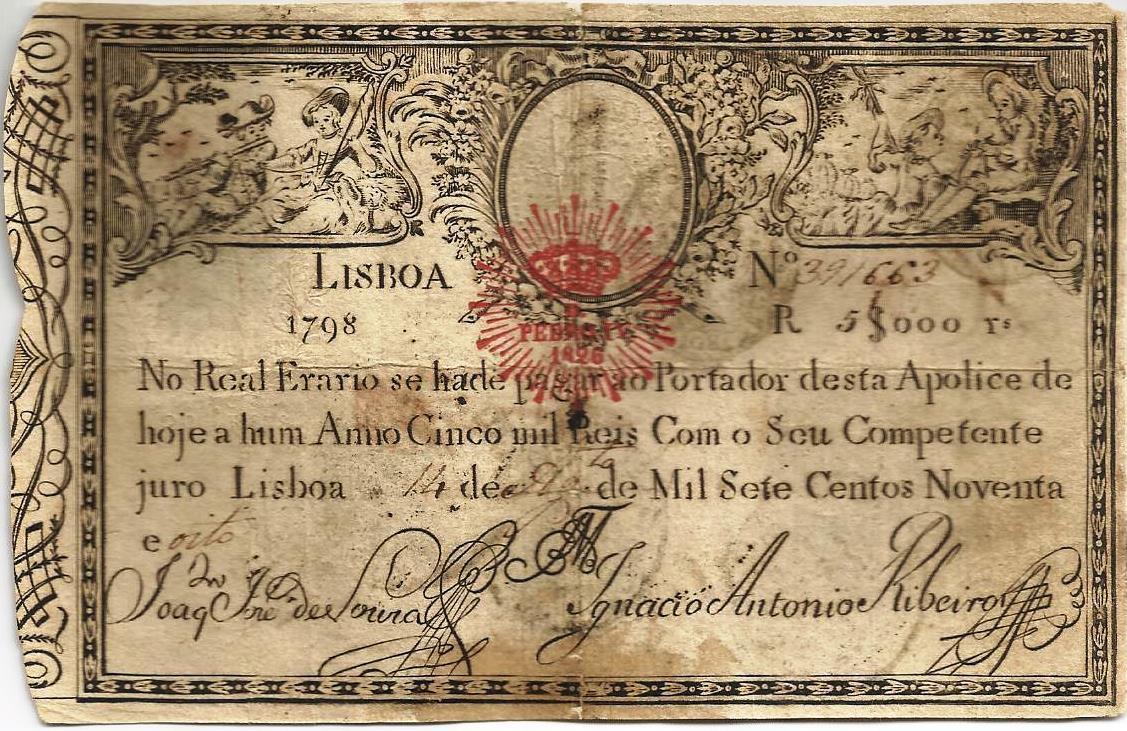 LISBOA
Nº 391663
1798
R 5$000 rs
PEDRO IV
1826
No Real Erario se hade pagar ao Portador desta Apolice de
hoje a hum Anno Cinco mil Reis Com o Seu Competente
juro Lisboa 14 de Agto de Mil Sete Centos Noventa
e oito
Joaqm Jose de Souza
Ignacio Antonio Ribeiro